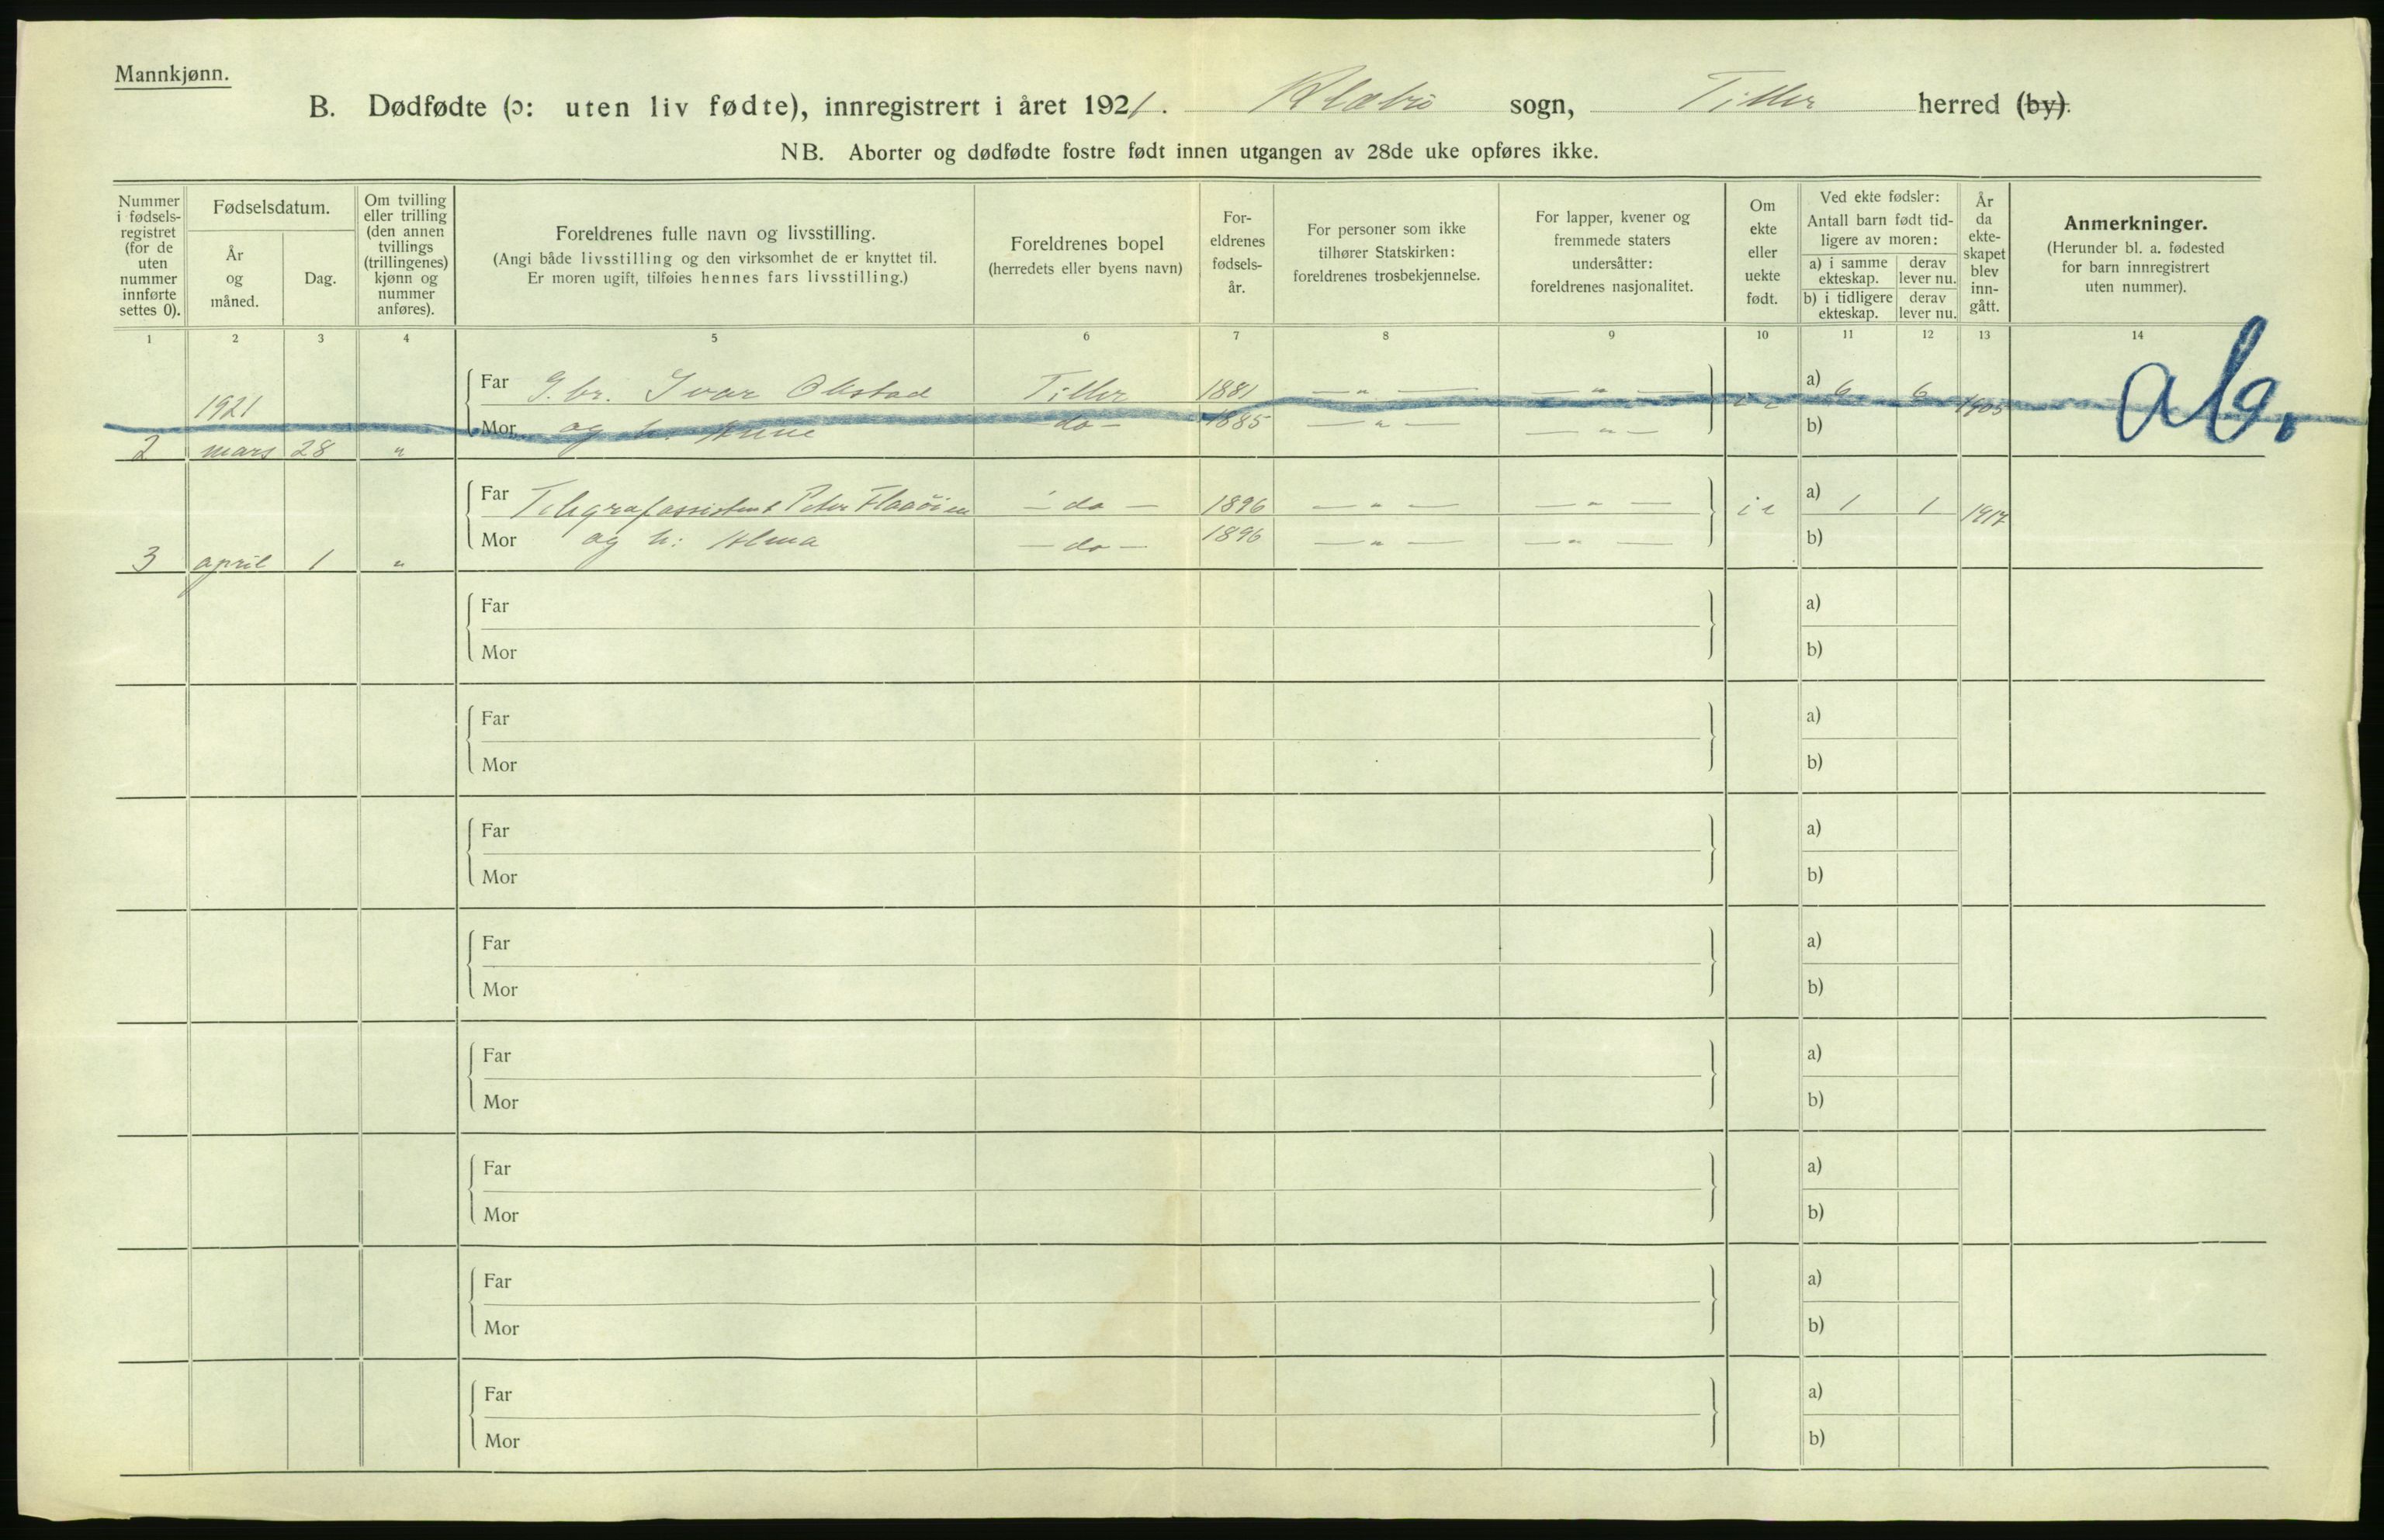 Mannkjønn.
B. Dødfødte (ɔ: uten liv fødte), innregistrert i året 1921. Klæbu sogn, Tiller herred (by).
NB. Aborter og dødfødte fostre født innen utgangen av 28de uke opføres ikke.
Nummer i fødsels-registret (for de uten nummer innførte settes 0).
Fødselsdatum.
År og måned.
Dag.
Om tvilling eller trilling (den annen tvillings (trillingenes) kjønn og nummer anføres).
Foreldrenes fulle navn og livsstilling.
(Angi både livsstilling og den virksomhet de er knyttet til.
Er moren ugift, tilføies hennes fars livsstilling.)
Foreldrenes bopel
(herredets eller byens navn)
For-eldrenes fødsels-år.
For personer som ikke tilhører Statskirken: foreldrenes trosbekjennelse.
For lapper, kvener og fremmede staters undersåtter: foreldrenes nasjonalitet.
Om ekte eller uekte født.
Ved ekte fødsler:
Antall barn født tid-ligere av moren:
a) i samme ekteskap.
derav lever nu.
b) i tidligere ekteskap.
derav lever nu.
År da ekte-skapet blev inn-gått.
Anmerkninger.
(Herunder bl. a. fødested for barn innregistrert uten nummer).
1 2 3 4 5 6 7 8 9 10 11 12 13 14
Far G.br. Ivar Olstad Tiller 1881 — „ — — „ — a) 6 6 1905 ab.
1921
Mor og h. Anne do — 1885 — „ — — „ — b)
2 mars 28 „
Far Telegrafassistent Peter Flaaöien — do — 1896 — „ — — „ — a) 1 1 1917
Mor og h: Alma — do — 1896 — „ — — „ — b)
3 april 1 „
Far a)
Mor b)
Far a)
Mor b)
Far a)
Mor b)
Far a)
Mor b)
Far a)
Mor b)
Far a)
Mor b)
Far a)
Mor b)
Far a)
Mor b)